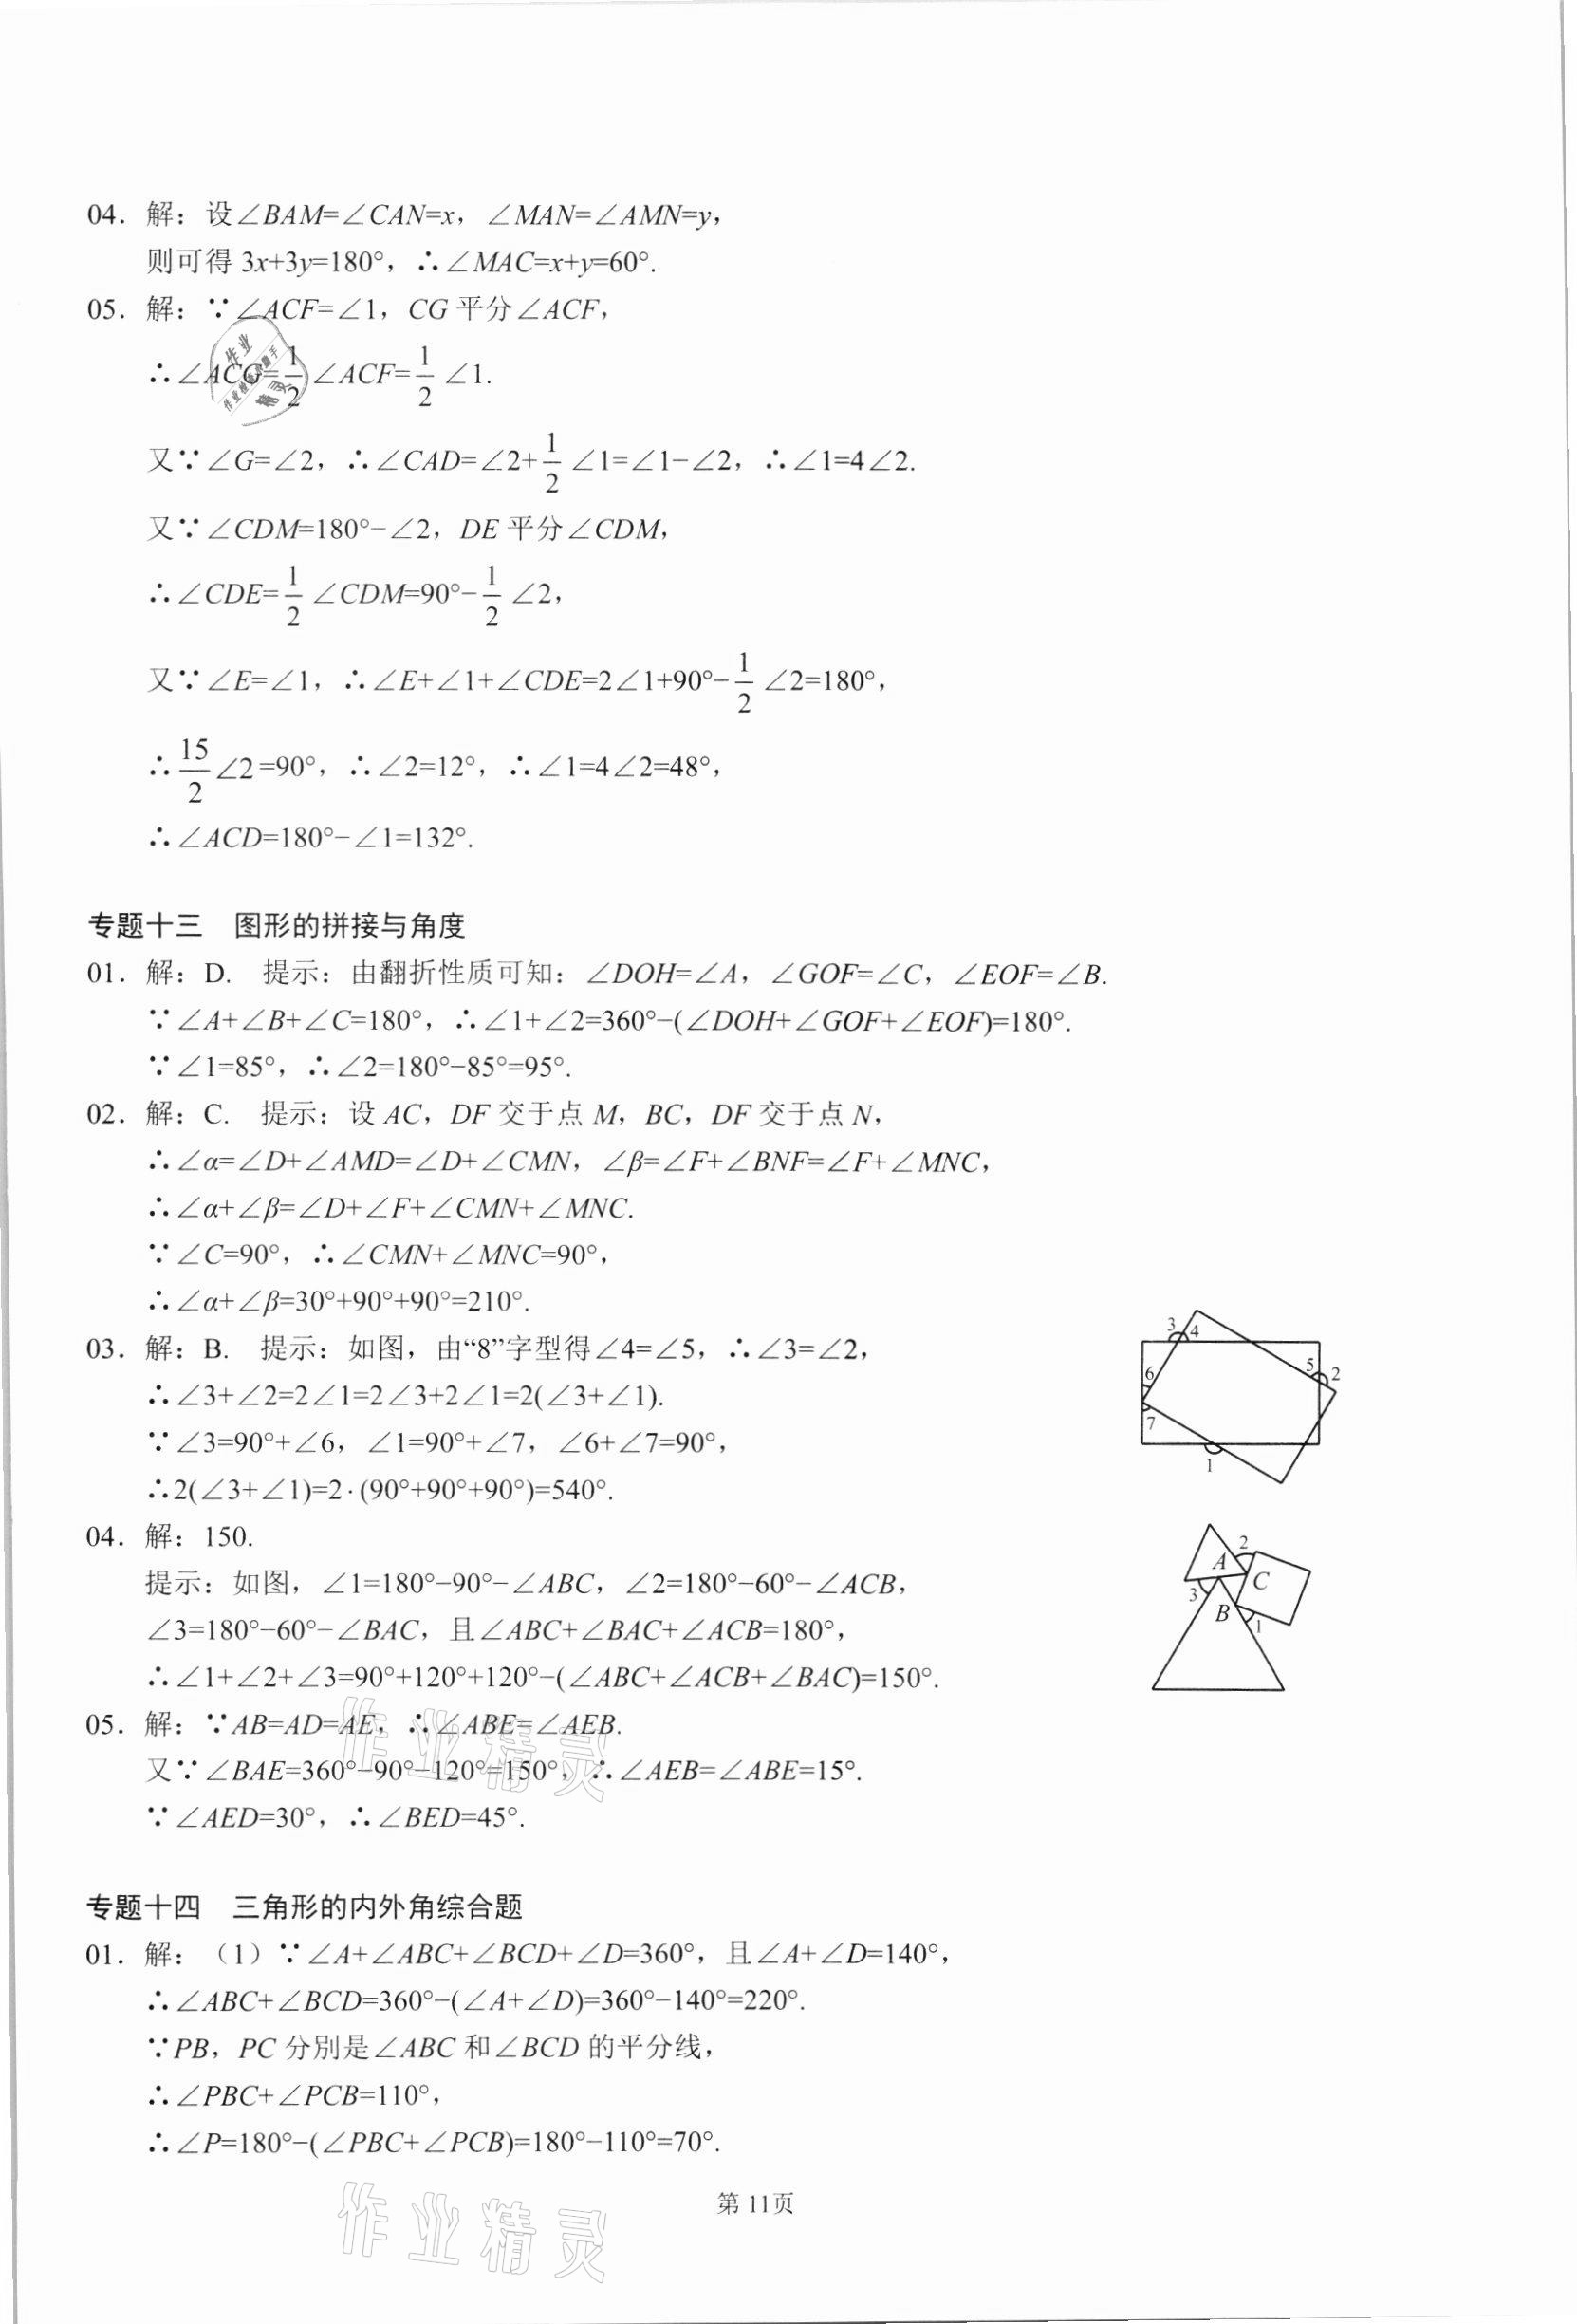 04. 解：设∠BAM=∠CAN=x，∠MAN=∠AMN=y，
则可得 3x+3y=180°，∴∠MAC=x+y=60°.
05. 解：∵∠ACF=∠1，CG 平分∠ACF，
∴∠ACG=1/2∠ACF=1/2∠1.
又∵∠G=∠2，∴∠CAD=∠2+1/2∠1=∠1−∠2，∴∠1=4∠2.
又∵∠CDM=180°−∠2，DE 平分∠CDM，
∴∠CDE=1/2∠CDM=90°−1/2∠2，
又∵∠E=∠1，∴∠E+∠1+∠CDE=2∠1+90°−1/2∠2=180°，
∴15/2∠2=90°，∴∠2=12°，∴∠1=4∠2=48°，
∴∠ACD=180°−∠1=132°.
专题十三 图形的拼接与角度
01. 解：D. 提示：由翻折性质可知：∠DOH=∠A，∠GOF=∠C，∠EOF=∠B.
∵∠A+∠B+∠C=180°，∴∠1+∠2=360°−(∠DOH+∠GOF+∠EOF)=180°.
∵∠1=85°，∴∠2=180°−85°=95°.
02. 解：C. 提示：设 AC，DF 交于点 M，BC，DF 交于点 N，
∴∠α=∠D+∠AMD=∠D+∠CMN，∠β=∠F+∠BNF=∠F+∠MNC，
∴∠α+∠β=∠D+∠F+∠CMN+∠MNC.
∵∠C=90°，∴∠CMN+∠MNC=90°，
∴∠α+∠β=30°+90°+90°=210°.
03. 解：B. 提示：如图，由“8”字型得∠4=∠5，∴∠3=∠2，
∴∠3+∠2=2∠1=2∠3+2∠1=2(∠3+∠1).
∵∠3=90°+∠6，∠1=90°+∠7，∠6+∠7=90°，
∴2(∠3+∠1)=2·(90°+90°+90°)=540°.
3 4
5 2
6
7
1
04. 解：150.
提示：如图，∠1=180°−90°−∠ABC，∠2=180°−60°−∠ACB，
∠3=180°−60°−∠BAC，且∠ABC+∠BAC+∠ACB=180°，
∴∠1+∠2+∠3=90°+120°+120°−(∠ABC+∠ACB+∠BAC)=150°.
2
A
C
3
B
1
05. 解：∵AB=AD=AE，∴∠ABE=∠AEB.
又∵∠BAE=360°−90°−120°=150°，∴∠AEB=∠ABE=15°.
∵∠AED=30°，∴∠BED=45°.
专题十四 三角形的内外角综合题
01. 解：（1）∵∠A+∠ABC+∠BCD+∠D=360°，且∠A+∠D=140°，
∴∠ABC+∠BCD=360°−(∠A+∠D)=360°−140°=220°.
∵PB，PC 分别是∠ABC 和∠BCD 的平分线，
∴∠PBC+∠PCB=110°，
∴∠P=180°−(∠PBC+∠PCB)=180°−110°=70°.
第 11页
作业精灵
作业精灵